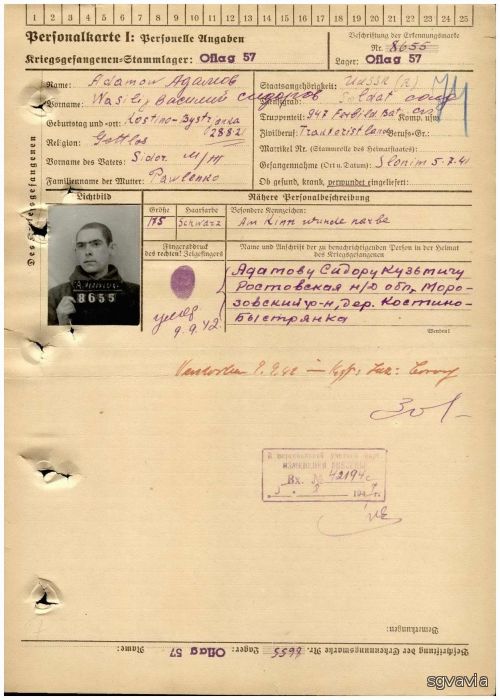 1 2 3 4 5 6 7 8 9 10 11 12 13 14 15 16 17 18 19 20 21 22 23 24 25
Personalkarte I: Personelle Angaben
Kriegsgefangenen-Stammlager: Oflag 57
Beschriftung der Erkennungsmarke
Nr. 8655
Lager: Oflag 57
Des Kriegsgefangenen
Name: Adamow Адамов
Vorname: Wasilij Василий Сидоров
Geburtstag und -ort: Kostino-Bystrjanka 28.8.21
Religion: Gottlos
Vorname des Vaters: Sidor
Familienname der Mutter: Pawlenko
Staatsangehörigkeit: UdSSR (R)
Dienstgrad: Soldat
Truppenteil: 947 Komp. usw.
Zivilberuf: Traktorist Berufs-Gr.:
Matrikel Nr. (Stammrolle des Heimatstaates):
Gefangennahme (Ort u. Datum): Slonim 5.7.41
Ob gesund, krank, verwundet eingeliefert:
Lichtbild
Nähere Personalbeschreibung
Größe Haarfarbe Besondere Kennzeichen:
175 Schwarz Am Kinn Wunde narbe
8655
Fingerabdruck
des rechten! Zeigefingers
Name und Anschrift der zu benachrichtigenden Person in der Heimat
des Kriegsgefangenen
Адамову Сидору Кузьмичу
Ростовская н/Д обл, Моро-
зовский р-н, дер. Костино-
Быстрянка
умер
9.9.42
Wenden!
Verstorben 9.9.42
301-
К персональной учетной карт
ИЗМЕНЕНИЯ ВНЕСЕНЫ
Вх. № 42194с
Bemerkungen:
Beschriftung der Erkennungsmarke Nr. 8655 Lager: Oflag 57 Name:
sgvavia